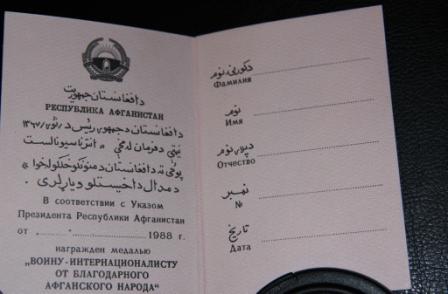 د افغانستان جمهوریت
РЕСПУБЛИКА АФГАНИСТАН
د افغانستان د جمهور رئیس د ۱۳۶۷
نیټې د فرمان له مخې « انترناسیونالست
د مډال داخیستلو ویاړ لری.
В соответствии с Указом
Президента Республики Афганистан
от „ . . . “ . . . . . . 1988 г.
награжден медалью
„ВОИНУ-ИНТЕРНАЦИОНАЛИСТУ
ОТ БЛАГОДАРНОГО
АФГАНСКОГО НАРОДА“
د کورنۍ نوم
Фамилия
نوم
Имя
د پلار نوم
Отчество
نمبر
№
تاریخ
Дата